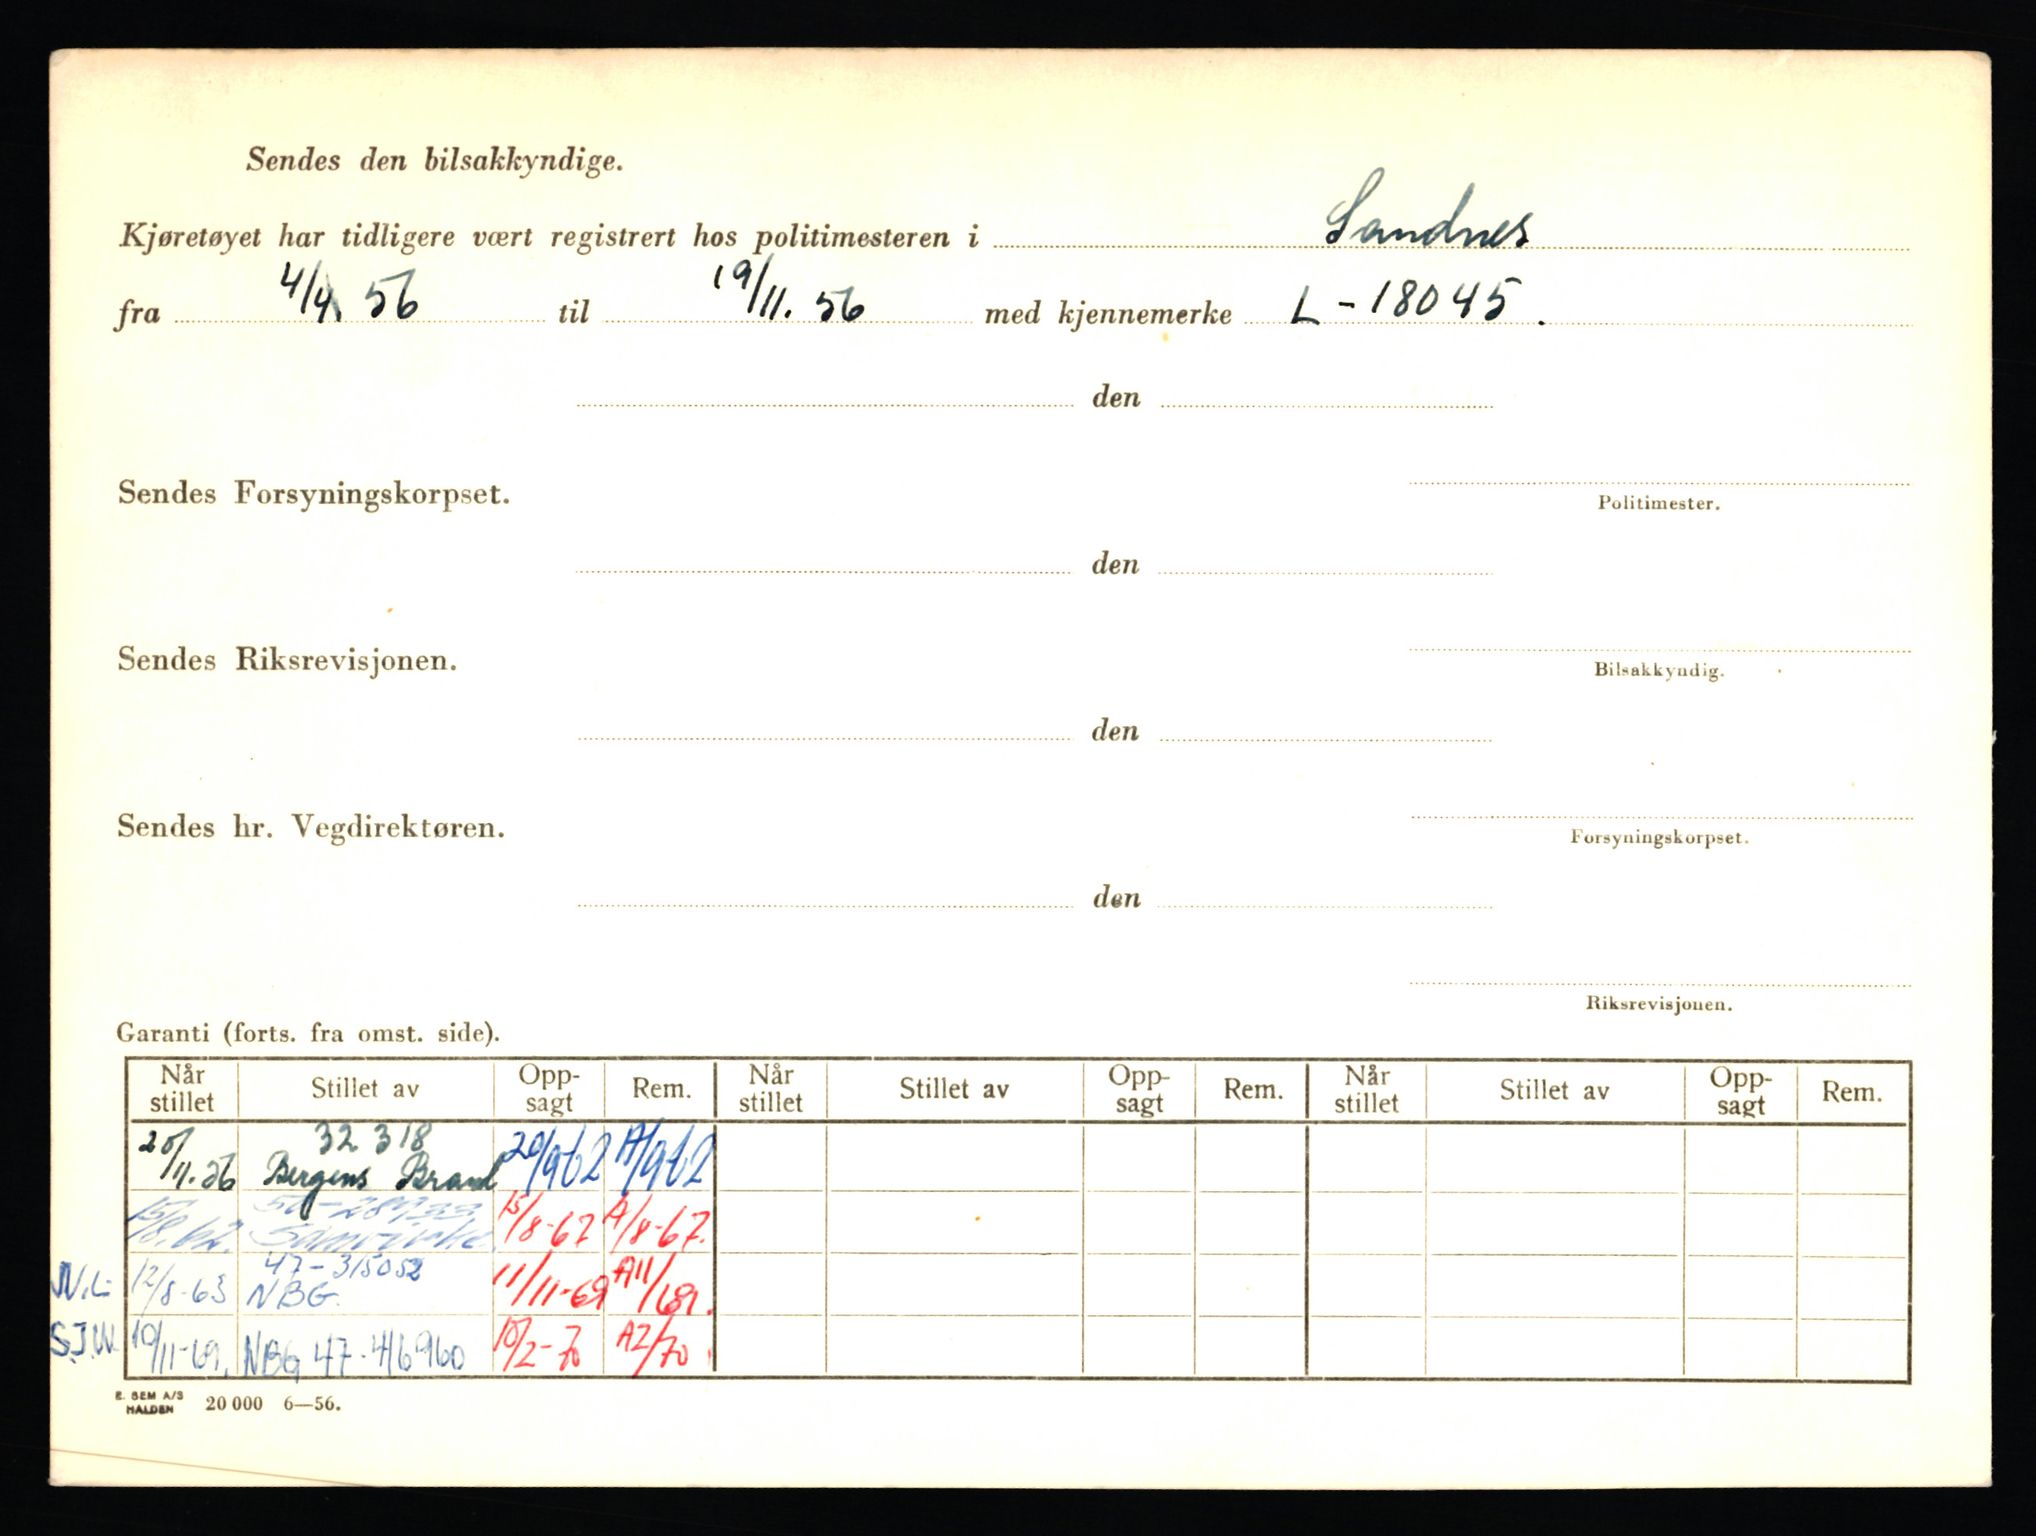 Sendes den bilsakkyndige.
Kjøretøyet har tidligere vært registrert hos politimesteren i Sandnes
fra 4/4 56 til 19/11. 56 med kjennemerke L-18045.
den
Sendes Forsyningskorpset.
Politimester.
den
Sendes Riksrevisjonen.
Bilsakkyndig.
den
Sendes hr. Vegdirektøren.
Forsyningskorpset.
den
Riksrevisjonen.
Garanti (forts. fra omst. side).
Når stillet Stillet av Opp-sagt Rem. Når stillet Stillet av Opp-sagt Rem. Når stillet Stillet av Opp-sagt Rem.
32 318
20/11.56 Bergens Brand 20/962 A/962
15/8.62. Samvirke 15/8-67 A/8-67.
47-315052
12/8-63 NBG. 11/11-69 A11/69.
S.J.W. 10/11-69. NBG 47-416960 10/2-70 A2/70
E. SEM A/S
HALDEN 20 000 6—56.